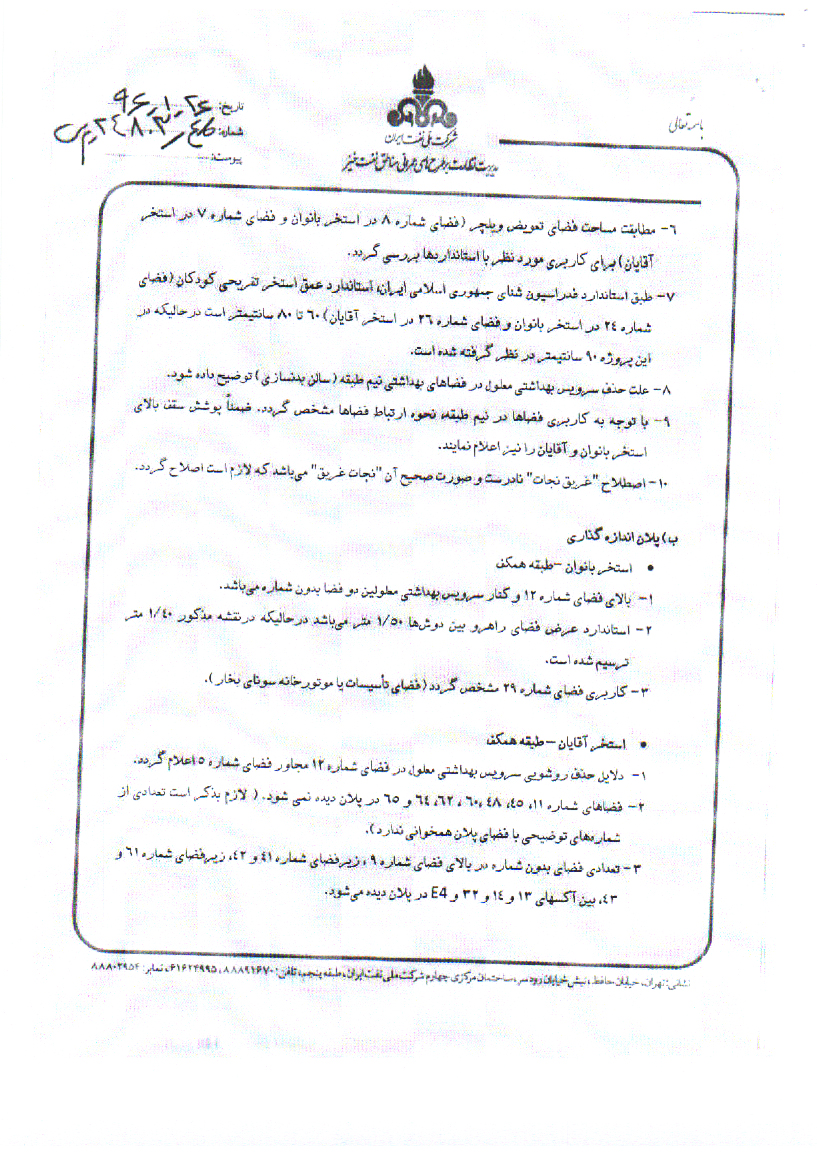 باسمه تعالی
شرکت ملی نفت ایران
مدیریت نظارت بر طرح های عمرانی مناطق نفت خیز
تاریخ:
شماره:
پیوست:
۶- مطابقت مساحت فضای تعویض ویلچر (فضای شماره ۸ در استخر بانوان و فضای شماره ۷ در استخر
آقایان) برای کاربری مورد نظر با استانداردها بررسی گردد.
۷- طبق استاندارد فدراسیون شنای جمهوری اسلامی ایران، استاندارد عمق استخر تفریحی کودکان (فضای
شماره ۲۴ در استخر بانوان و فضای شماره ۲۶ در استخر آقایان) ۶۰ تا ۸۰ سانتیمتر است در حالیکه در
این پروژه ۹۰ سانتیمتر در نظر گرفته شده است.
۸- علت حذف سرویس بهداشتی معلول در فضاهای بهداشتی نیم طبقه (سالن بدنسازی) توضیح داده شود.
۹- با توجه به کاربری فضاها در نیم طبقه، نحوه ارتباط فضاها مشخص گردد. ضمناً پوشش سقف بالای
استخر بانوان و آقایان را نیز اعلام نمایند.
۱۰- اصطلاح "غریق نجات" نادرست و صورت صحیح آن "نجات غریق" می‌باشد که لازم است اصلاح گردد.
ب) پلان اندازه گذاری
• استخر بانوان – طبقه همکف
۱- بالای فضای شماره ۱۲ و کنار سرویس بهداشتی معلولین دو فضا بدون شماره می‌باشد.
۲- استاندارد عرض فضای راهرو بین دوش‌ها ۱/۵۰ متر می‌باشد در حالیکه در نقشه مذکور ۱/۴۰ متر
ترسیم شده است.
۳- کاربری فضای شماره ۲۹ مشخص گردد (فضای تأسیسات یا موتورخانه سونای بخار).
• استخر آقایان – طبقه همکف
۱- دلایل حذف روشویی سرویس بهداشتی معلول در فضای شماره ۱۲ مجاور فضای شماره ۵ اعلام گردد.
۲- فضاهای شماره ۱۱، ۴۵، ۴۸، ۶۰، ۶۲، ۶۴ و ۶۵ در پلان دیده نمی شود. (لازم بذکر است تعدادی از
شماره‌های توضیحی با فضای پلان همخوانی ندارد).
۳- تعدادی فضای بدون شماره در بالای فضای شماره ۹، زیر فضای شماره ۴۱ و ۴۲، زیر فضای شماره ۶۱ و
۴۳، بین آکسهای ۱۳ و ۱۴ و ۳۲ و E4 در پلان دیده می‌شود.
نشانی: تهران، خیابان حافظ، نبش خیابان رودسر، ساختمان مرکزی چهارم شرکت ملی نفت ایران، طبقه پنجم، تلفن: ۸۸۸۹۲۶۷۰، ۶۱۶۲۴۹۹۵، نمابر: ۸۸۸۰۲۹۵۴